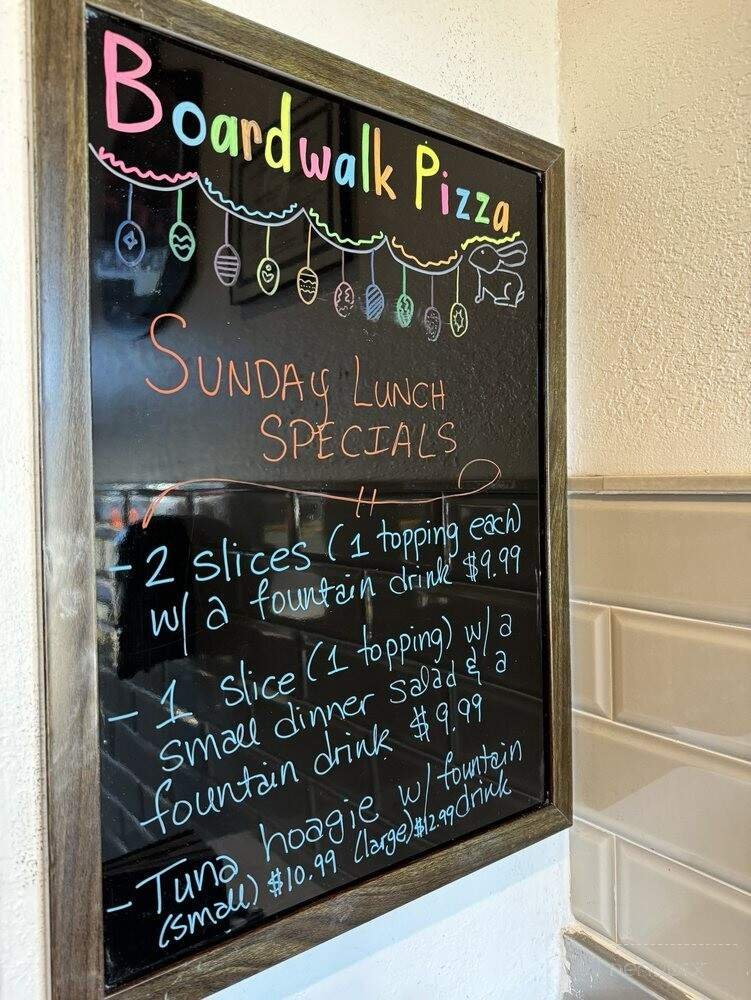 Boardwalk Pizza
SUNDAY LUNCH
SPECIALS
- 2 slices (1 topping each)
w/ a fountain drink $9.99
- 1 slice (1 topping) w/ a
small dinner salad & a
fountain drink $9.99
- Tuna hoagie w/ fountain
(small) $10.99 (large) $12.99 drink